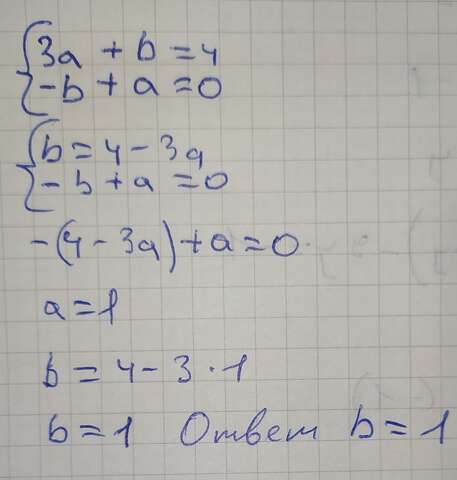 3a + b = 4
-b + a = 0
b = 4 - 3a
-b + a = 0
-(4 - 3a) + a = 0
a = 1
b = 4 - 3 · 1
b = 1 Ответ b = 1